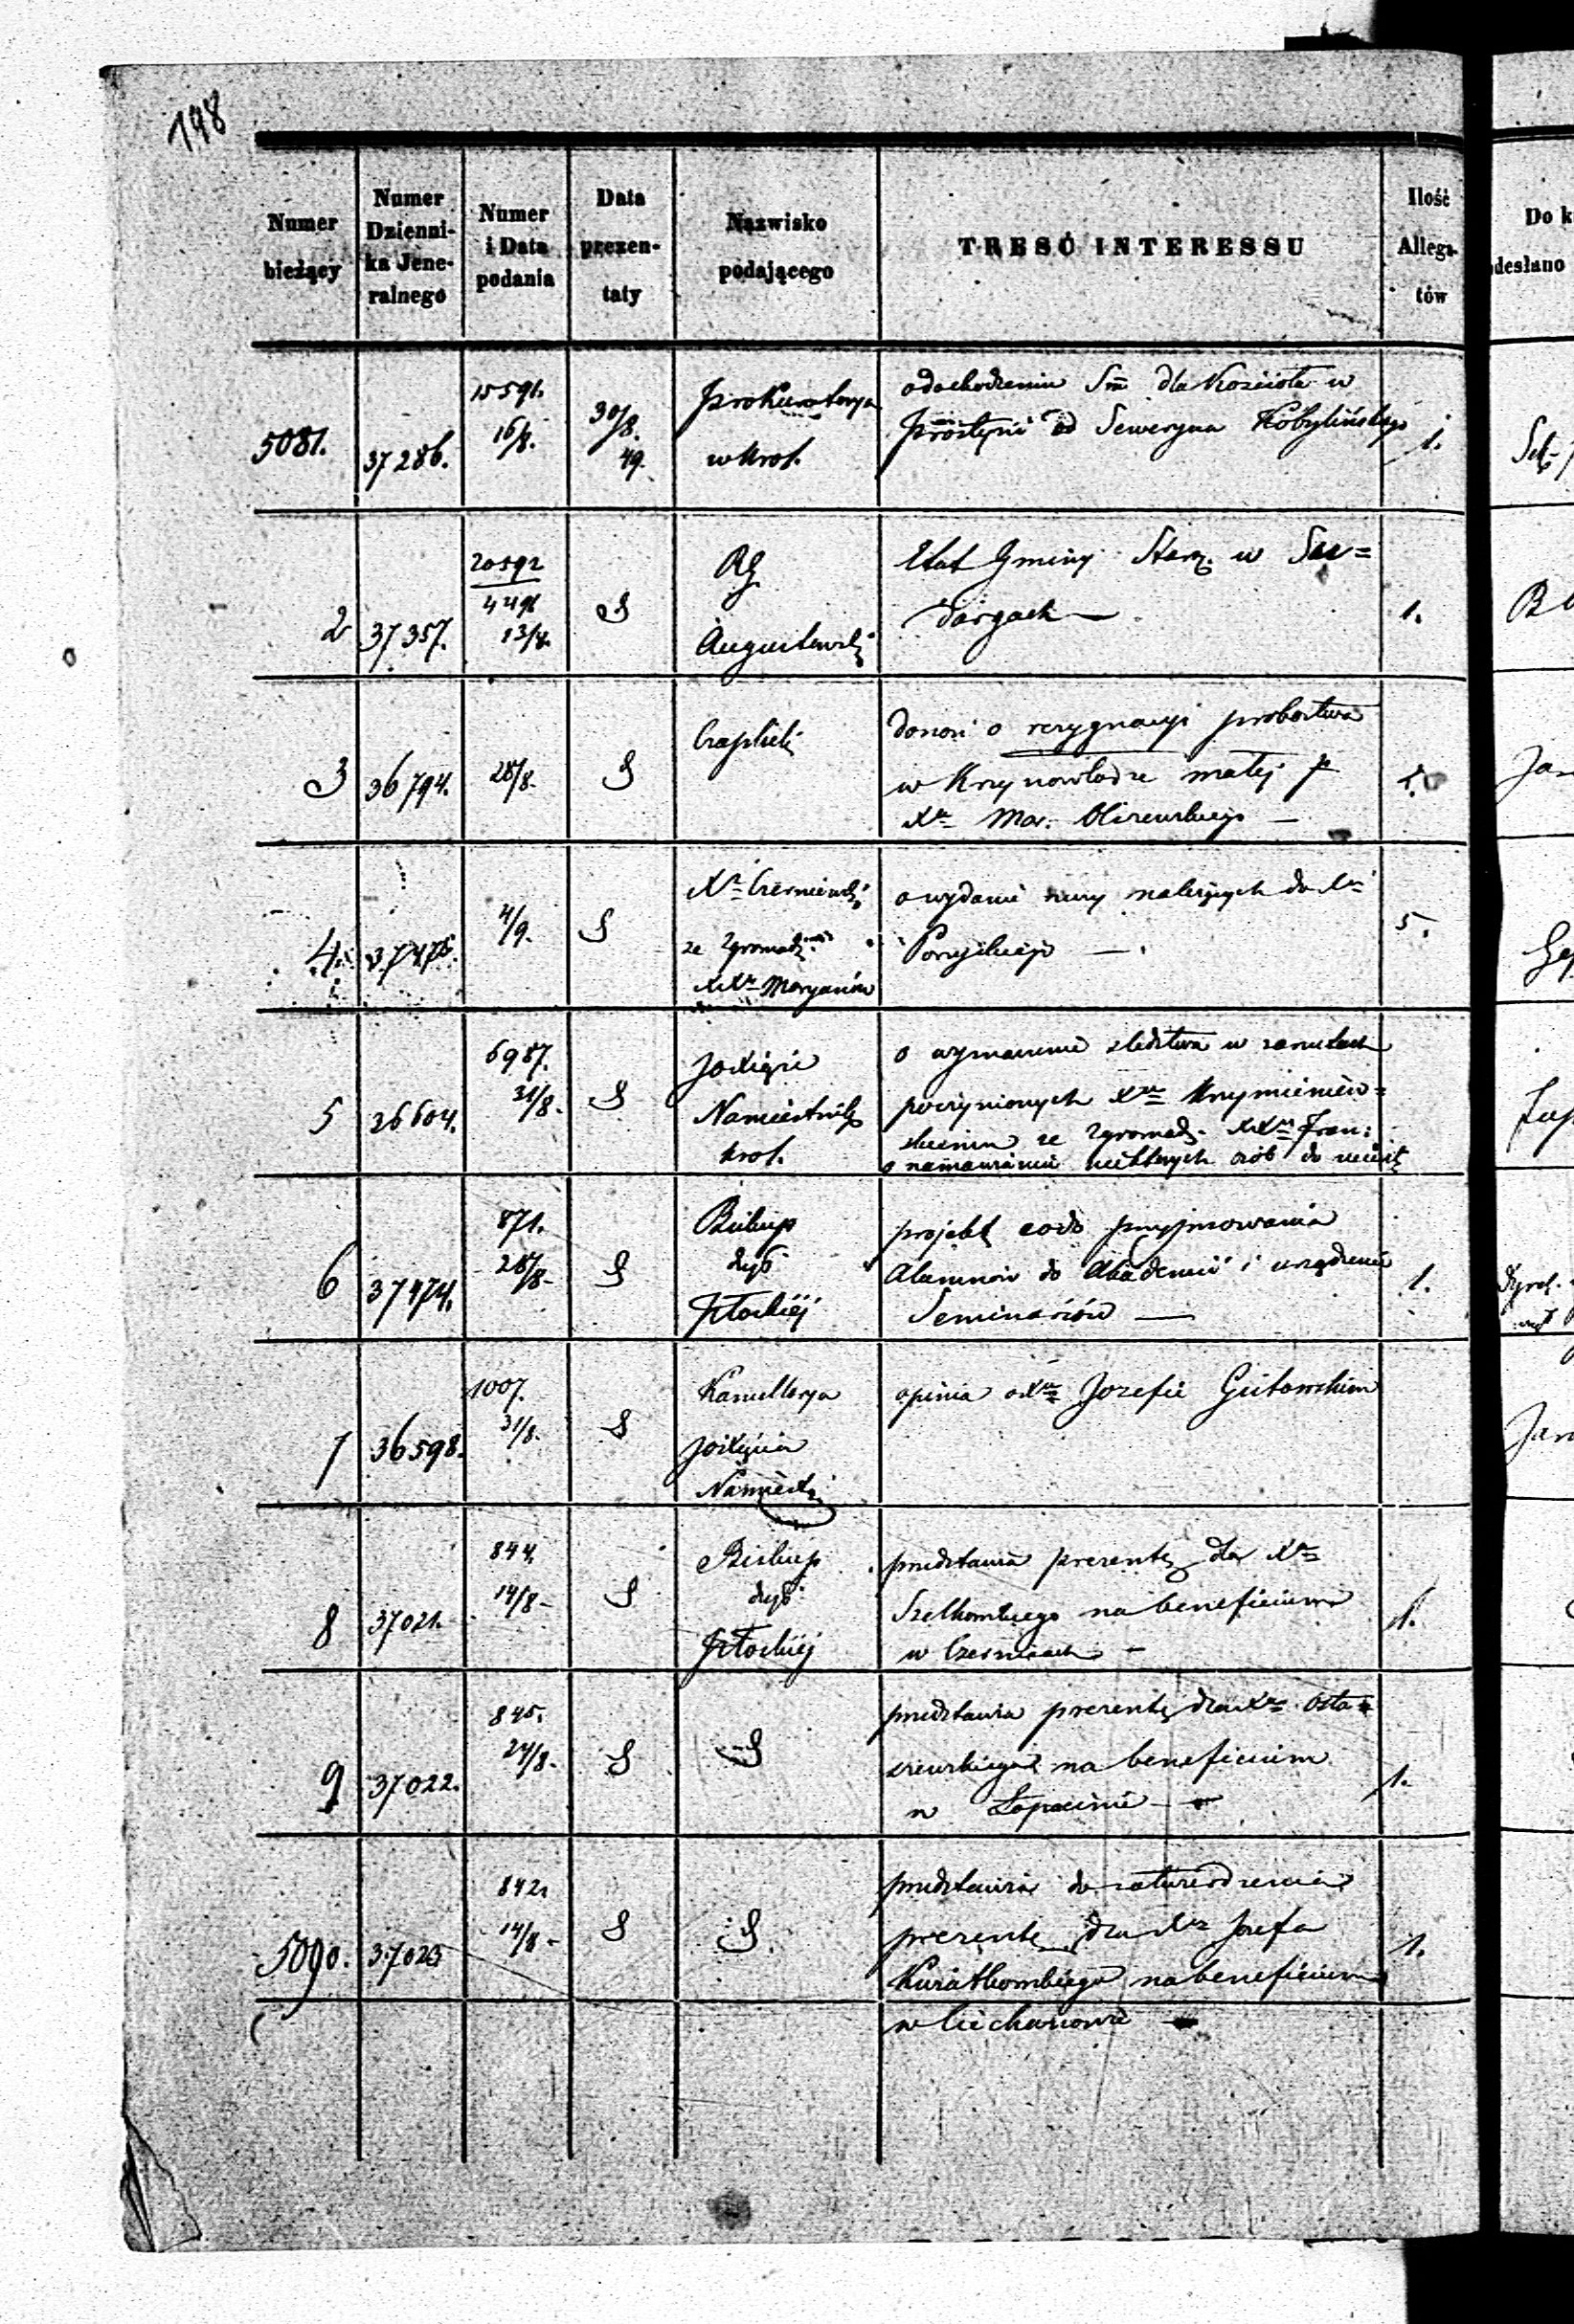 198
Numer bieżący
Numer Dzienni-ka Jene-ralnego
Numer i Data podania
Data prezen-taty
Nazwisko podającego
TREŚĆ INTERESSU
Ilość Allega-tów
Do k
desłano
5081.
37286.
15591.
16/8.
30/8.
49.
Prokuratorya
w Krol.
o dochodzeniu Sm dla Kościoła w
Prostyni od Seweryna Kobylińskiego
1.
2
37357.
20592
13/8.
RG
Augustowski
Etat Gminy Starz. w Sau=
dargach —
1.
3
36794.
28/8.
Czaplicki
donosi o rezygnacyi probostwa
w Krzynowłodze małej p
Xa Mar. Olszewskiego —
4.
4/9.
Xa Czerniewski
ze Zgromadz.
XXa Maryanów
o wydanie
należących do Xa
5.
5
36604.
6987.
31/8.
JO Xiąże
Namiestnik
Krol.
o wyznaczenie śledztwa w zarzutach
poczynionych Xu Krzymieniew=
skiemu ze Zgromadz. XXw Fran:
o namawianie niektórych osób do
6
37474.
871.
28/8.
Biskup
dyec
Płockiej
projekt codo przyjmowania
Alumnów do Akademii i urządzenia
Seminariów —
1.
7
36598.
1007.
31/8.
Kancellarya
JO Xięcia
Namiest.
opinia o Xu Jozefie Gutowskim
8
37021.
844.
14/8.
Biskup
dyec
Płockiej
przedstawia prezentę dla Xa
Szelkowskiego na beneficium
w Czernicach —
1.
9
37022.
845.
24/8.
przedstawia prezentę dla Xa Osta=
szewskiego na beneficium
w Łopacinie —
1.
5090.
37023
842.
14/8.
przedstawia do zatwierdzenia
prezentę dla Xa Jozefa
Kwiatkowskiego na beneficium
w Ciechanowie —
1.